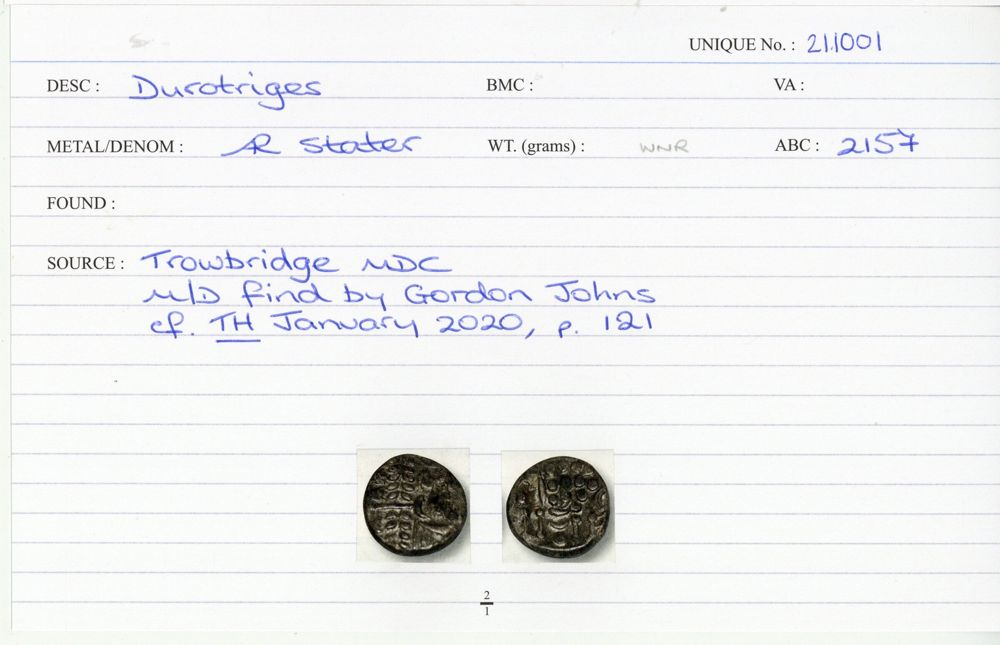 UNIQUE No. : 21.1001
DESC : Durotriges BMC : VA :
METAL/DENOM : AR stater WT. (grams) : WNR ABC : 2157
FOUND :
SOURCE : Trowbridge MDC
M/D find by Gordon Johns
cf. TH January 2020, p. 121
2
1